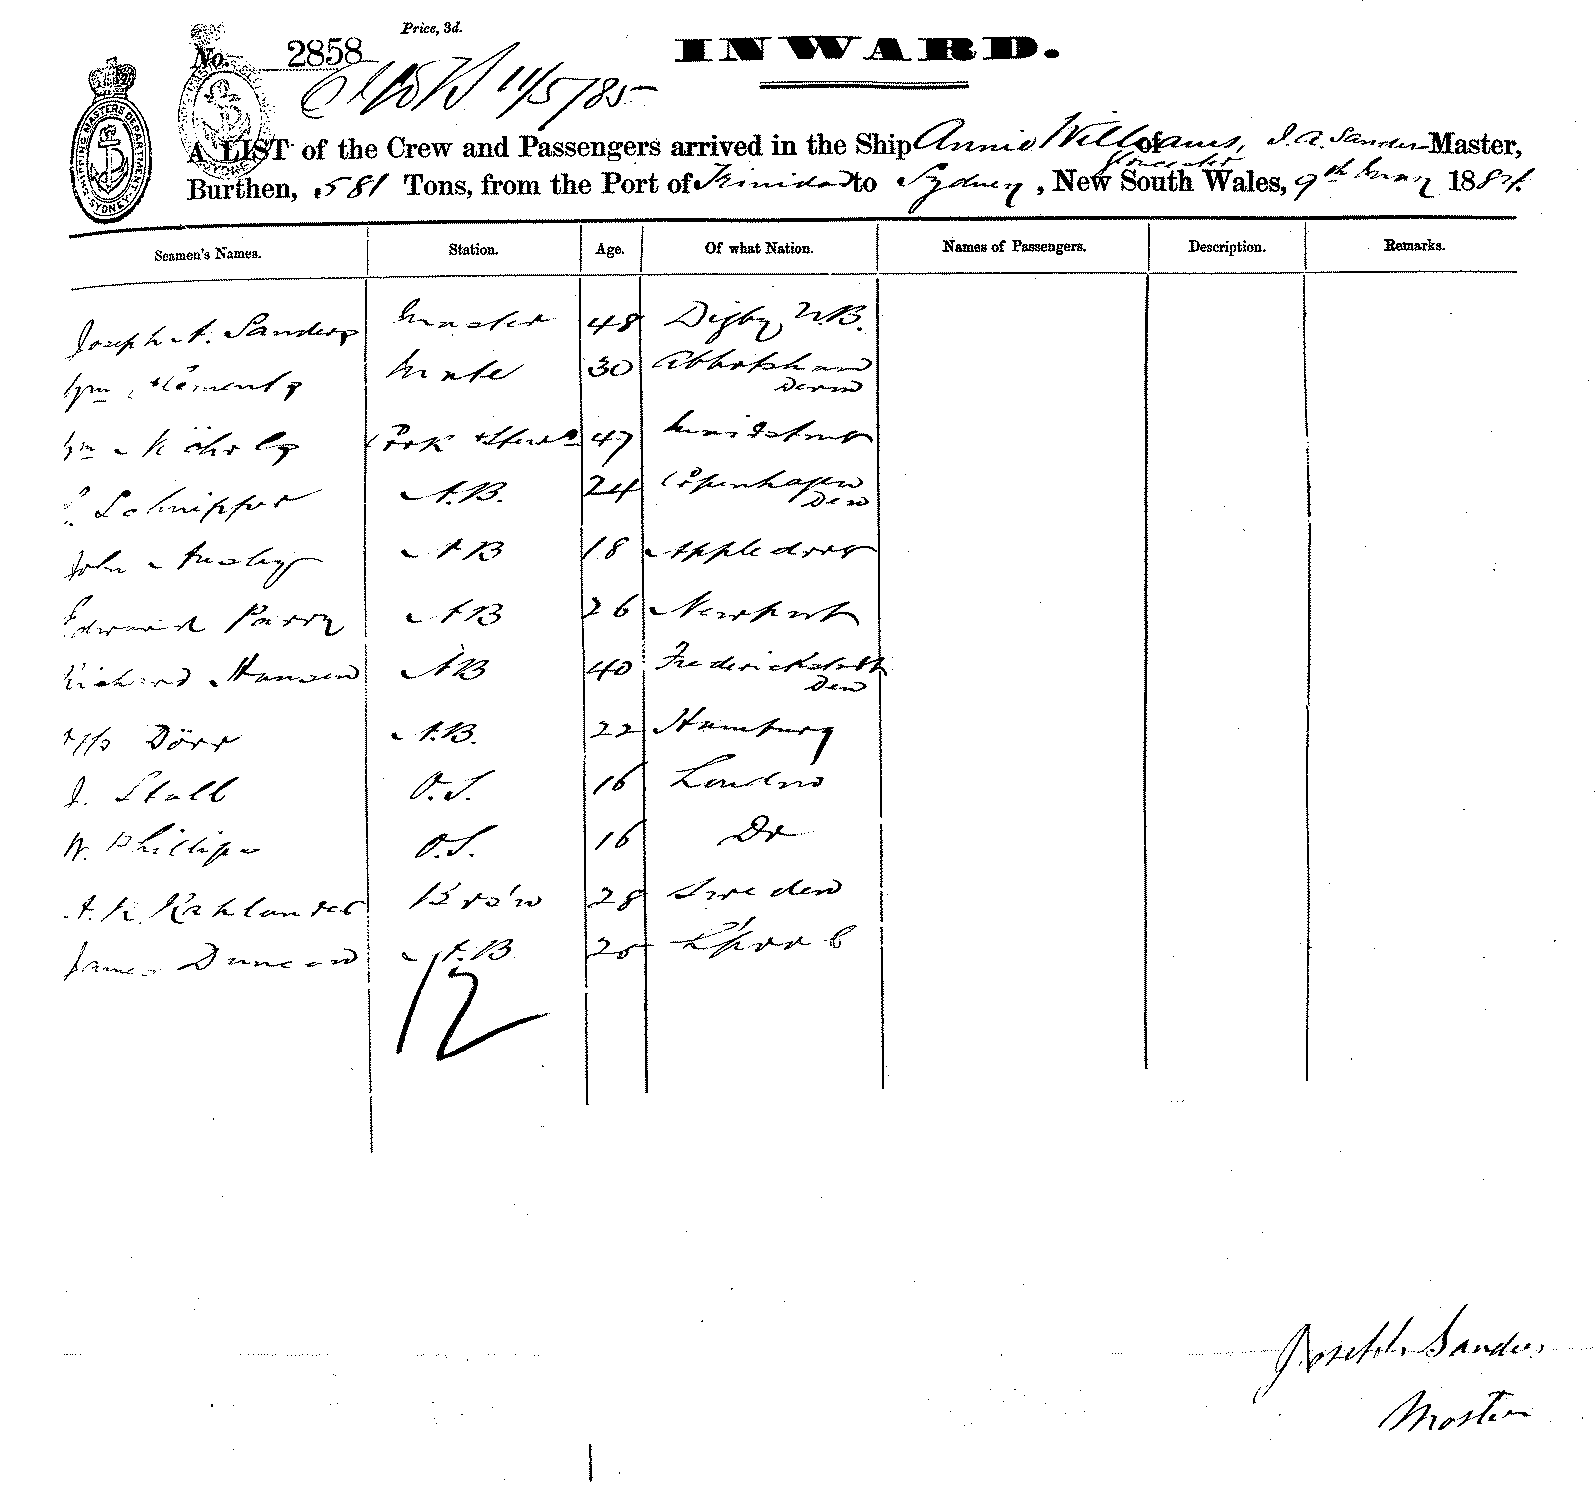 Price, 3d.
No. 2858
INWARD.
11/5/85
A LIST of the Crew and Passengers arrived in the Ship Annie Williams, of Gloucester J. A. Sanders Master,
Burthen, 581 Tons, from the Port of Trinidad to Sydney, New South Wales, 9th May 188
Seamen's Names. Station. Age. Of what Nation. Names of Passengers. Description. Remarks.
Joseph A. Sanders Master 48 Digby N.B.
Wm Clements Mate 30 Abbotsham
Devon
Wm Cook & Stewd 47 Maidstone
Schnipper A.B. 24 Copenhagen
Den
John Ansley AB 18 Appledore
Edward Parry AB 26 Newport
Richard Hansen AB 40 Frederickstadt
Den
Dörr A.B. 22 Hamburg
J. Stall O.S. 16 London
W. Phillips O.S. 16 Do
A. K. Kahlander Bos'n 28 Sweden
James Duncan A.B 25 L'pool
12
Joseph Sanders
Master